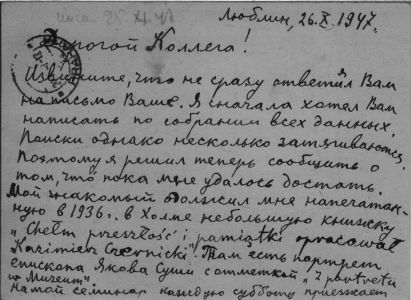 Люблин, 26.X.1947.
Дорогой Коллега!
Извините, что не сразу ответил я Вам
на письмо Ваше. Я сначала хотел Вам
написать по собрании всех данных.
Поиски однако несколько затягиваются.
Поэтому я решил теперь сообщить о
том, что пока мне удалось достать.
Мой знакомый одолжил мне напечатан-
ную в 1936 г. в Холме небольшую книжку
„Chełm przeszłość i pamiątki opracował
Kazimierz Czernicki". Там есть портрет
епископа Якова Суши с отметкой „Z portretu
w Muzeum".
На мой семинар каждую субботу приезжает